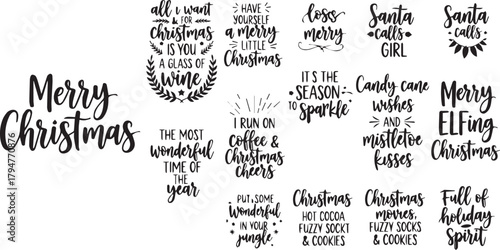 Merry
Christmas
all i want
& FOR
Christmas
IS YOU
A GLASS OF
wine
HAVE
YOURSELF
a merry
LITTLE
Christmas
loss
merry
Santa
calls
GIRL
Santa
calls
THE MOST
wonderful
TIME OF
THE
year
I RUN ON
Coffee &
Christmas
cheers
IT'S THE
SEASON
TO sparkle
Candy cane
wishes
AND
mistletoe
kisses
Merry
ELFing
Christmas
PUT SOME
Wonderful
IN YOUR
jungle
Christmas
HOT COCOA
FUZZY SOCKT
& COOKIES
Christmas
movies,
FUZZY SOCKS
& COOKIES
Full of
holiday
Spirit
Adobe Stock | #1794770876